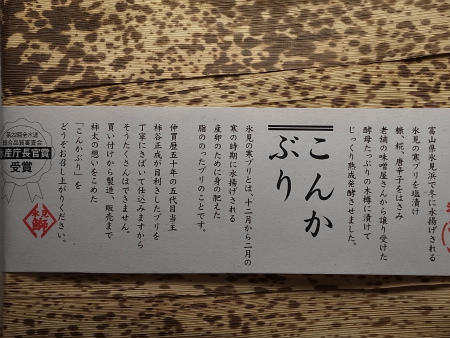 富山県氷見浜で冬に水揚げされる
氷見の寒ブリを塩漬け
糠、糀、唐辛子をはさみ
老舗の味噌屋さんから譲り受けた
酵母たっぷりの木樽に漬けて
じっくり熟成発酵させました。
こんか
ぶり
氷見の寒ブリとは、十二月から二月の
寒の時期に水揚げされる
産卵のために身の肥えた
脂ののったブリのことです。
仲買歴五十年の五代目当主
柿谷正成が目利きしたブリを
丁寧にさばいて仕込みますから
そうたくさんはできません。
買い付けから製造、販売まで
柿太の想いをこめた
「こんかぶり」を
どうぞお召し上がりください。
第22回全水加
総合品質審査会
水産庁長官賞
受賞
氷見
鰤